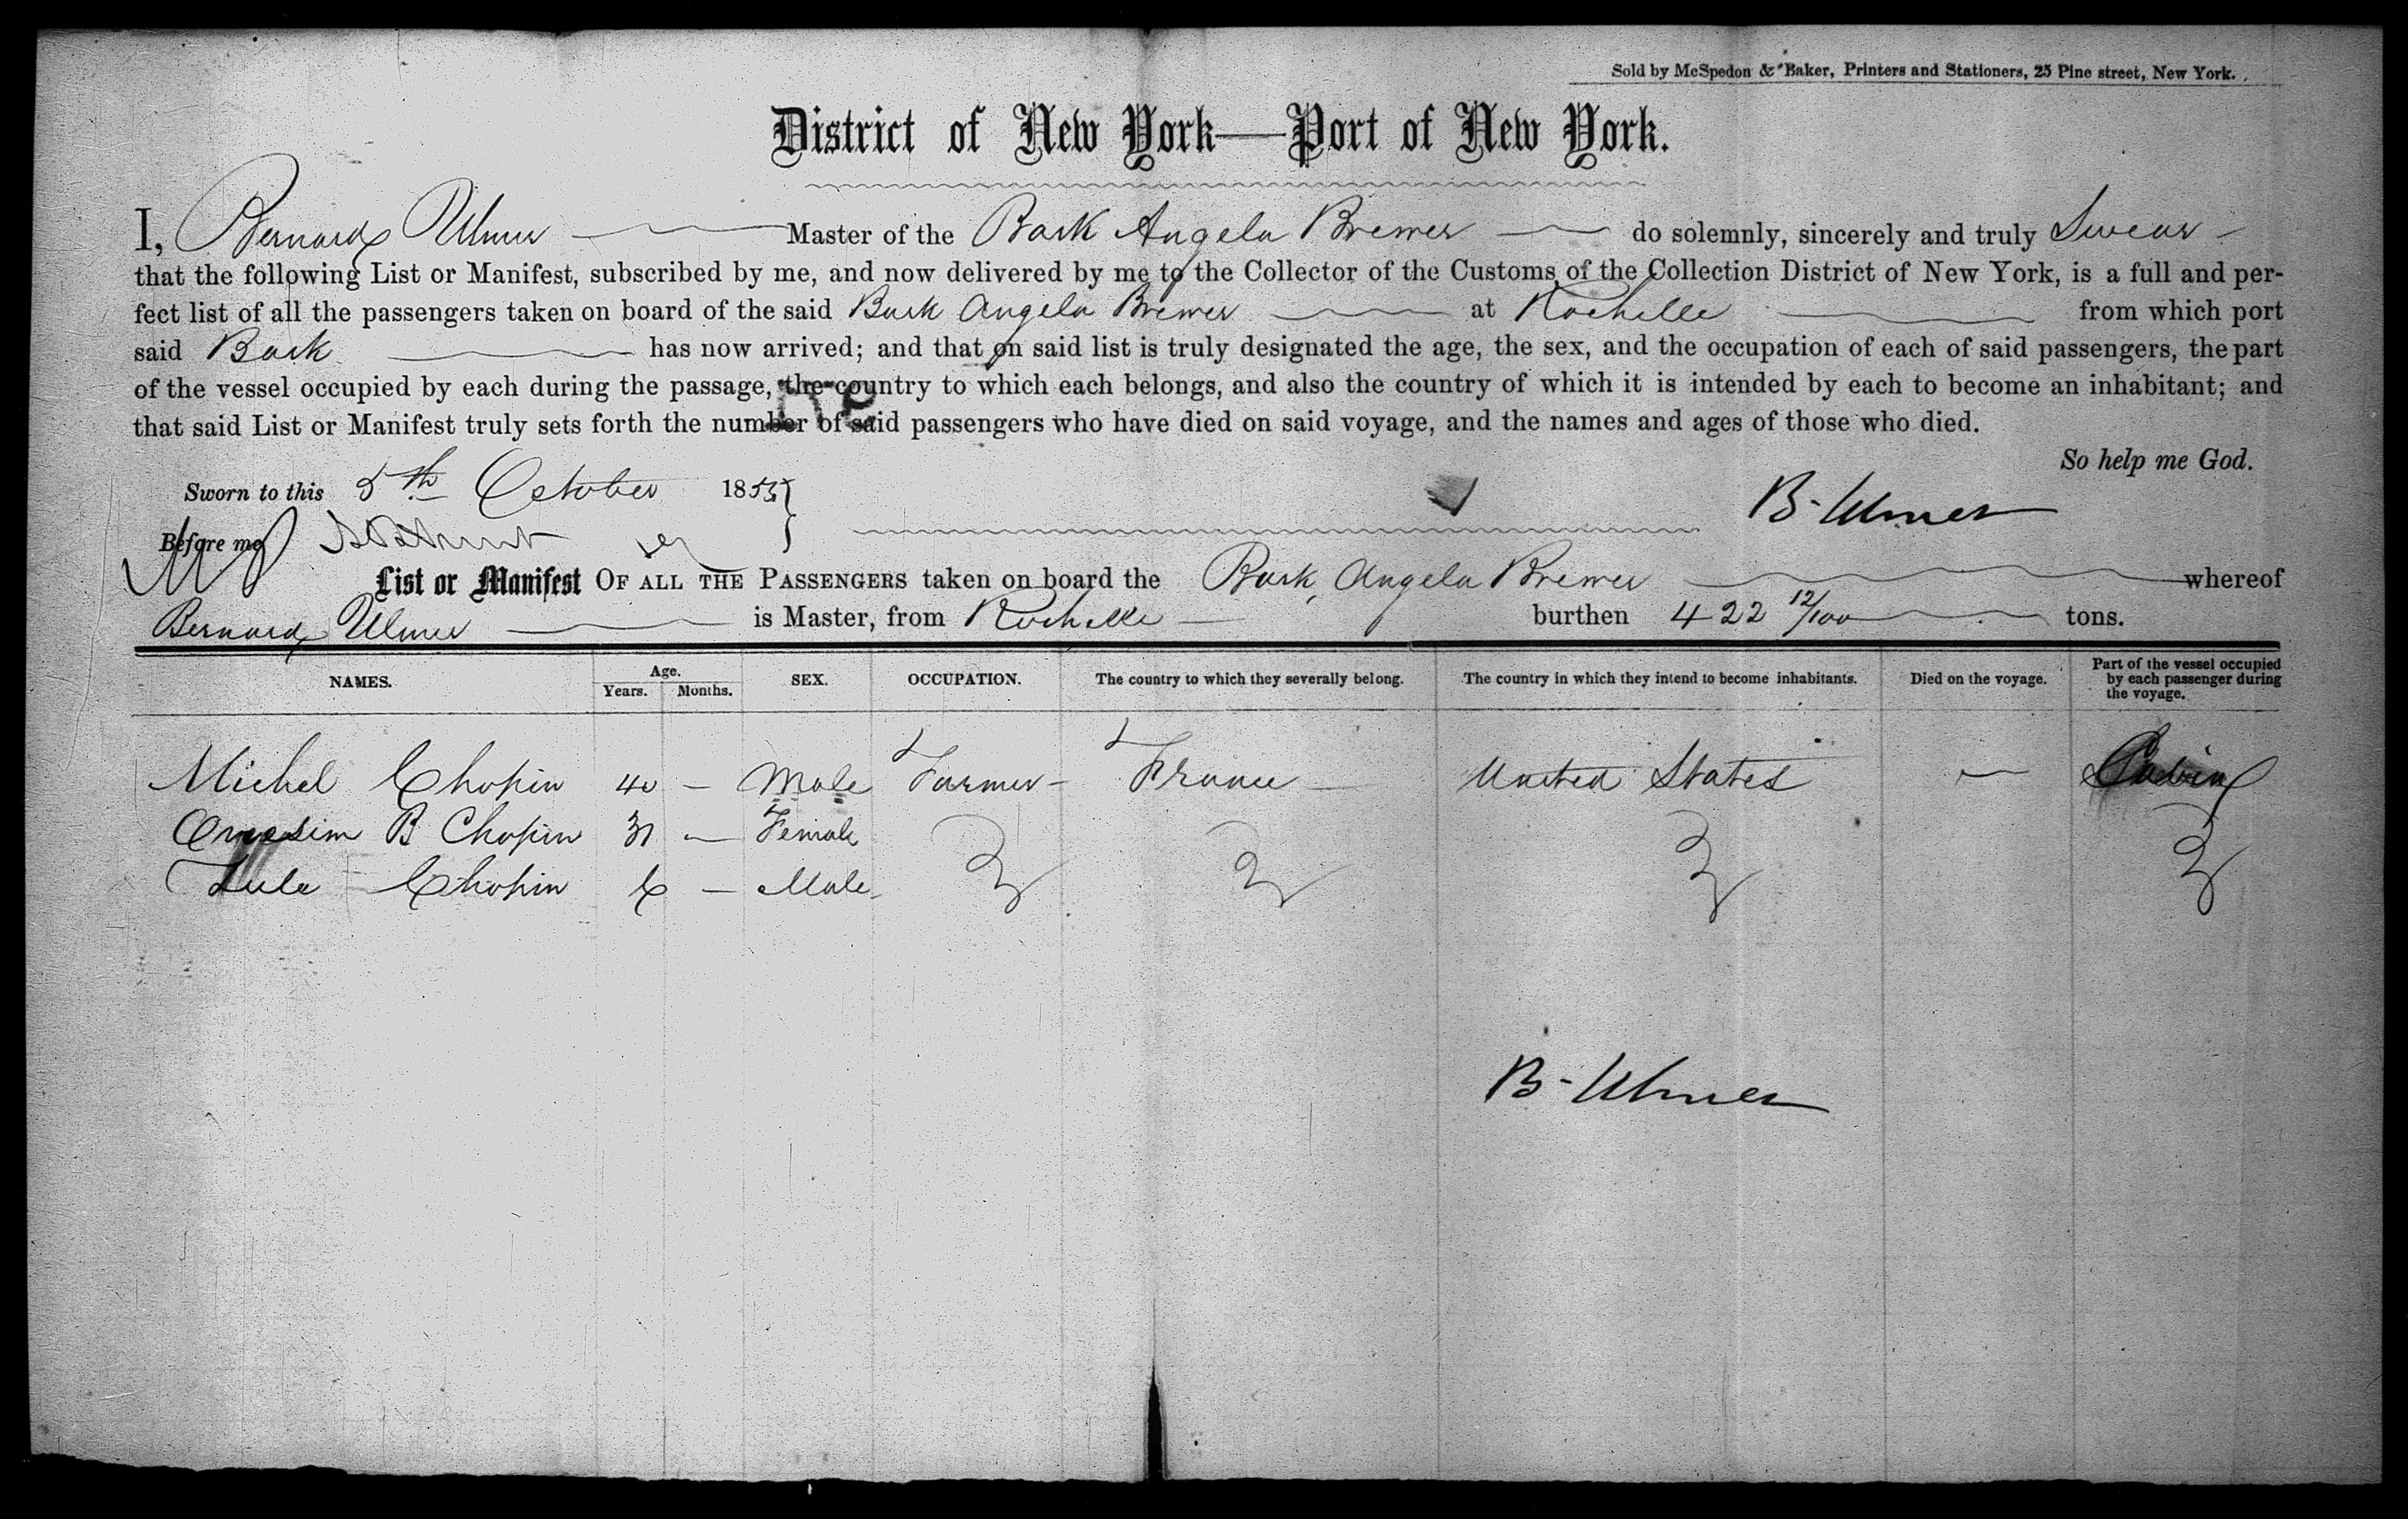 Sold by McSpedon & Baker, Printers and Stationers, 25 Pine street, New York.
District of New York—Port of New York.
I, Bernard Ulmer Master of the Bark Angela Brewer do solemnly, sincerely and truly Swear
that the following List or Manifest, subscribed by me, and now delivered by me to the Collector of the Customs of the Collection District of New York, is a full and per-
fect list of all the passengers taken on board of the said Bark Angela Brewer at Rochelle from which port
said Bark has now arrived; and that on said list is truly designated the age, the sex, and the occupation of each of said passengers, the part
of the vessel occupied by each during the passage, the country to which each belongs, and also the country of which it is intended by each to become an inhabitant; and
that said List or Manifest truly sets forth the number of said passengers who have died on said voyage, and the names and ages of those who died.
So help me God.
Sworn to this 5th October 1853
B- Ulmer
Before me
List or Manifest OF ALL THE PASSENGERS taken on board the Bark, Angela Brewer whereof
Bernard Ulmer is Master, from Rochelle burthen 422 12/100 tons.
NAMES. Age. Years. Months. SEX. OCCUPATION. The country to which they severally belong. The country in which they intend to become inhabitants. Died on the voyage. Part of the vessel occupied by each passenger during the voyage.
Michel Chopin 40 - Male Farmer - France United States - Cabin
B Chopin 31 - Female
Chopin 6 - Male
B- Ulmer